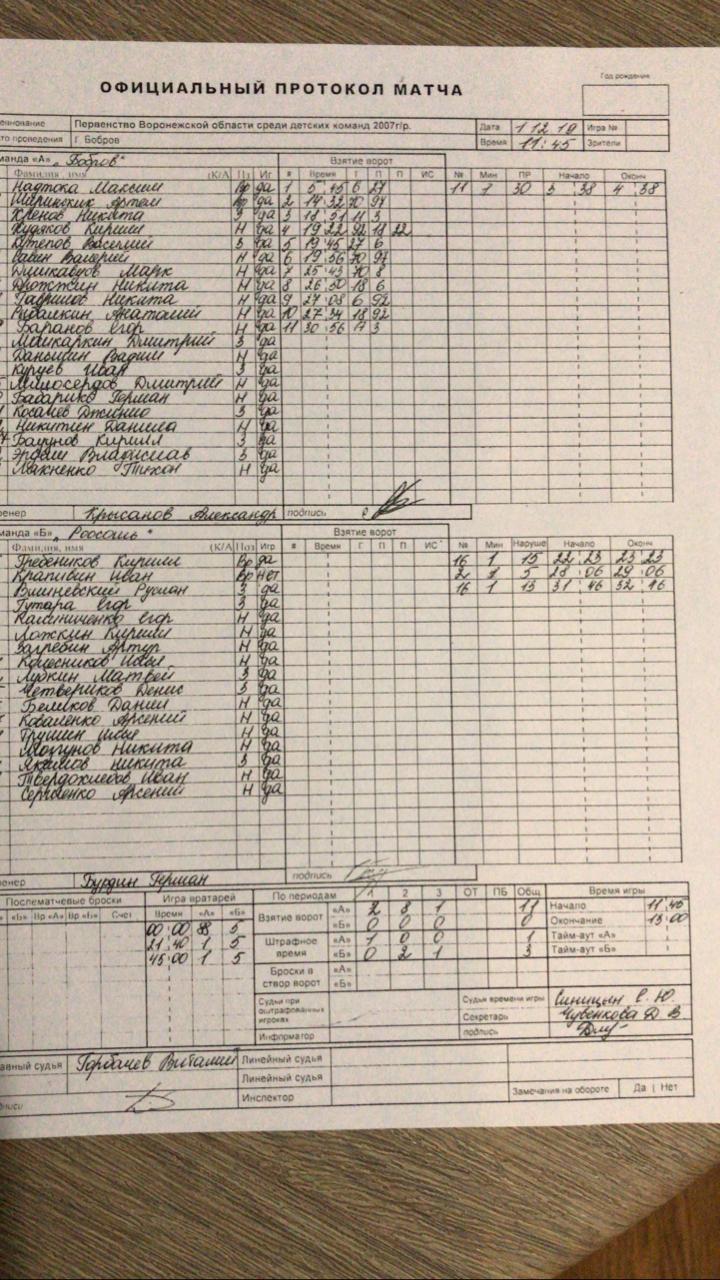 Год рождения
ОФИЦИАЛЬНЫЙ ПРОТОКОЛ МАТЧА
Первенство Воронежской области среди детских команд 2007г/р. Дата 1 12 19 Игра №
проведения Г. Бобров Время 11:45 Зрители
«А» „Бобров" Взятие ворот
Фамилия, имя (К/А) Пз Иг # Время Г П П ИС № Мин ПР Начало Оконч
Надтока Максим Вр да 1 5 45 6 27 11 1 30 3 38 4 38
Артем Вр да 2 14 32 70 97
Хренов Никита З да 3 18 51 11 3
Худяков Кирилл Н да 4 19 22 92 18 22
Кутепов Василий З да 5 19 45 27 6
Валерий Н да 6 19 56 70 97
Марк Н да 7 25 43 70 8
Никита Н да 8 26 50 18 6
Гаврилов Никита Н да 9 27 08 6 92
Рыбалкин Анатолий Н да 10 27 34 18 92
Баранов Егор Н да 11 30 56 17 3
Мошкаркин Дмитрий З да
Даньшин Вадим Н да
Куруев Иван З да
Милосердов Дмитрий Н да
Герман Н да
З да
Никитин Данила Н да
Кирилл З да
Владислав З да
Махненко Тихон Н да
Крысанов Александр подпись
«Б» „Россошь" Взятие ворот
Фамилия, имя (К/А) Поз Игр # Время Г П П ИС № Мин Наруше Начало Оконч
Гребеников Кирилл Вр да 16 1 15 22 23 23 23
Крапивин Иван Вр нет 2 1 5 28 06 29 06
Вишневский Руслан З да 16 1 13 31 46 32 46
Гутара Егор З да
Калиниченко Егор Н да
Ложкин Кирилл Н да
Загребин Артур Н да
Колесников Илья Н да
Лубкин Матвей З да
Четвериков Денис З да
Беликов Данил Н да
Коваленко Арсений Н да
Трушин Илья Н да
Никита Н да
Никита З да
Твердохлебов Иван Н да
Арсений Н да
Бурдин Герман подпись
Послематчевые броски Игра вратарей По периодам 1 2 3 ОТ ПБ Общ Время игры
«Б» Вр «А» Вр «Б» Счет Время «А» «Б» Взятие ворот «А» 2 8 1 11 Начало 11 45
00 00 88 5 «Б» 0 0 0 0 Окончание 13 00
21 40 1 5 Штрафное время «А» 1 0 0 1 Тайм-аут «А»
45 00 1 5 «Б» 0 2 1 3 Тайм-аут «Б»
Броски в створ ворот «А»
«Б»
Судьи при оштрафованных игроках Судья времени игры Синицын С. Ю.
Секретарь Чувенкова Д В
Информатор подпись
судья Горбачев Виталий Линейный судья
Линейный судья
Инспектор Замечания на обороте Да | Нет